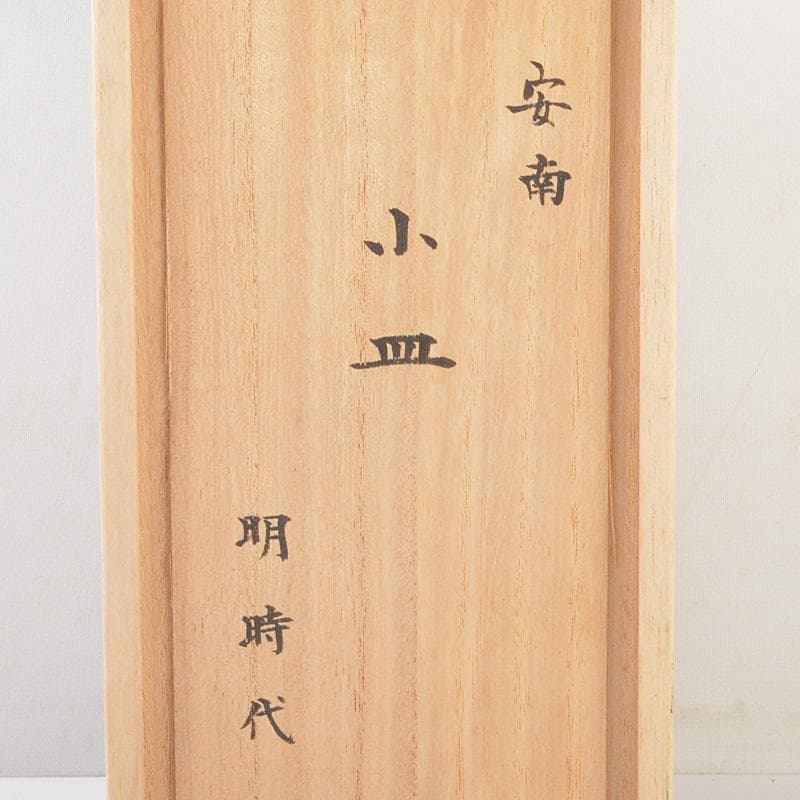 安南
小皿
明時代